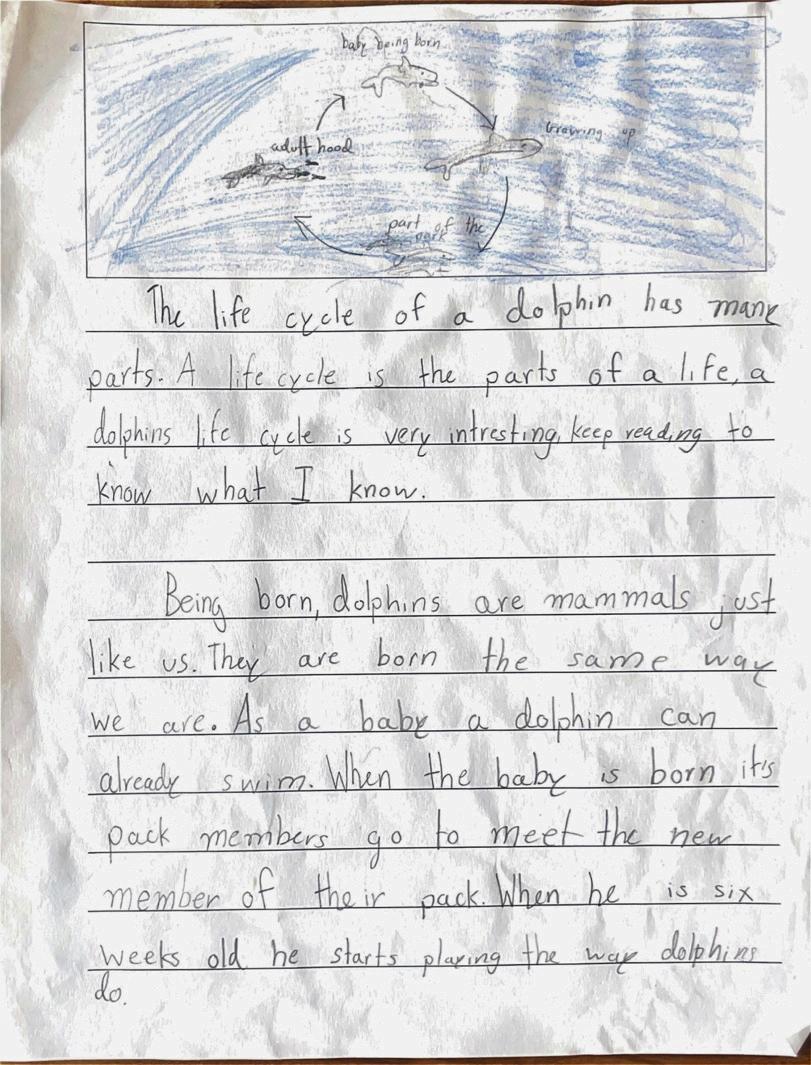 baby being born
growing up
adult hood
part of the
pack
The life cycle of a dolphin has many
parts. A life cycle is the parts of a life, a
dolphins life cycle is very intresting, keep reading to
know what I know.
Being born, dolphins are mammals just
like us. They are born the same way
we are. As a baby a dolphin can
already swim. When the baby is born it's
pack members go to meet the new
member of their pack. When he is six
weeks old he starts playing the way dolphins
do.